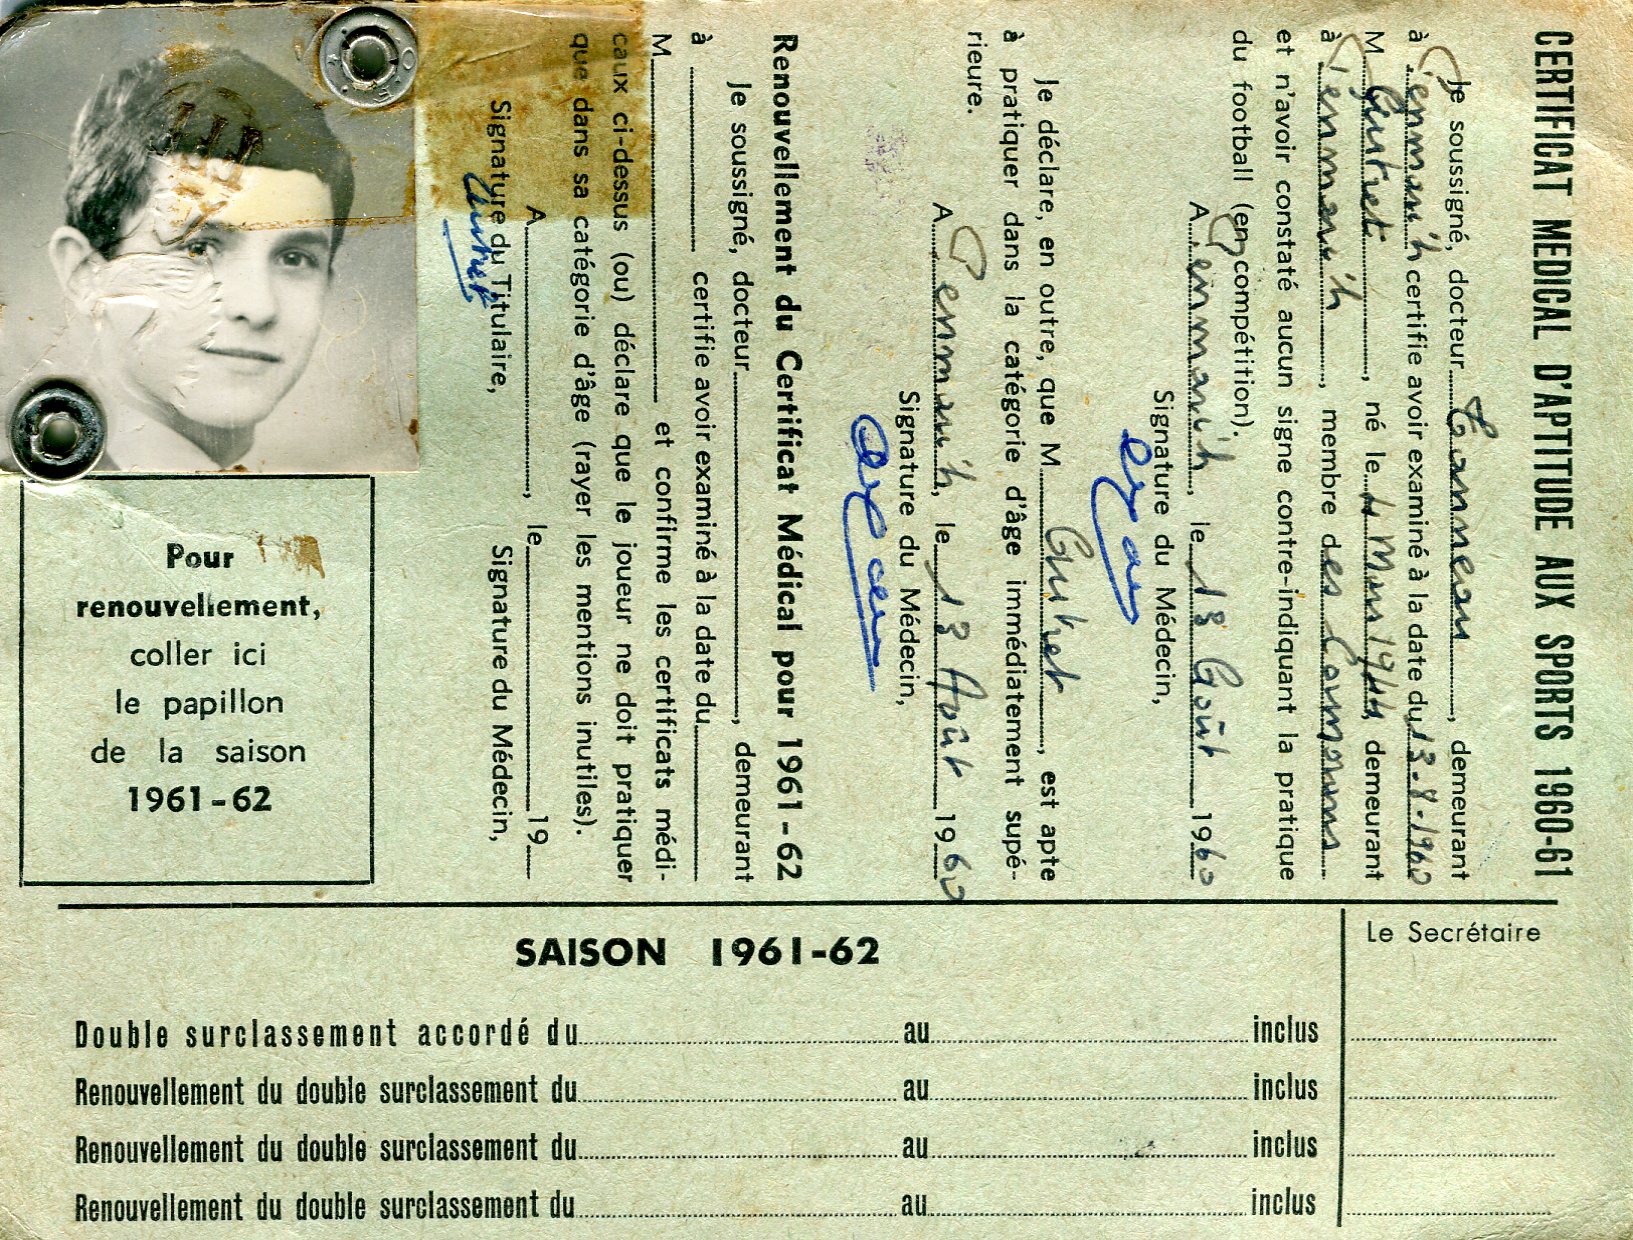 CERTIFICAT MEDICAL D'APTITUDE AUX SPORTS 1960-61
Je soussigné, docteur, demeurant
à Penmarc'h certifie avoir examiné à la date du 13-8-1960
M., né le 4 Mars 1944, demeurant
à Penmarc'h, membre des Cormorans
et n'avoir constaté aucun signe contre-indiquant la pratique
du football (en compétition).
A Penmarc'h, le 13 Août 1960
Signature du Médecin,
Je déclare, en outre, que M., est apte
à pratiquer dans la catégorie d'âge immédiatement supé-
rieure.
A Penmarc'h, le 13 Août 1960
Signature du Médecin,
Renouvellement du Certificat Médical pour 1961-62
Je soussigné, docteur, demeurant
à certifie avoir examiné à la date du
M. et confirme les certificats médi-
caux ci-dessus (ou) déclare que le joueur ne doit pratiquer
que dans sa catégorie d'âge (rayer les mentions inutiles).
A, le 19
Signature du Titulaire, Signature du Médecin,
Pour
renouvellement,
coller ici
le papillon
de la saison
1961-62
Le Secrétaire
SAISON 1961-62
Double surclassement accordé du au inclus
Renouvellement du double surclassement du au inclus
Renouvellement du double surclassement du au inclus
Renouvellement du double surclassement du au inclus